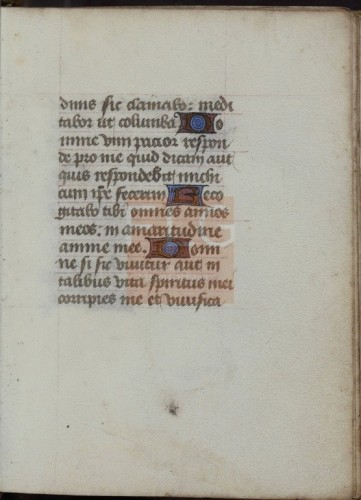 dinus sic clamabo: medi
tabor ut columba Do
mine vim patior respon
de pro me quid dicam aut
quis respondebit michi
cum ip̄e fecerim Reco
gitabo tibi omnes annos
meos. in amaritudine
anime mee. Domi
ne si sic vivitur aut in
talibus vita spiritus mei
corripies me et vivifica